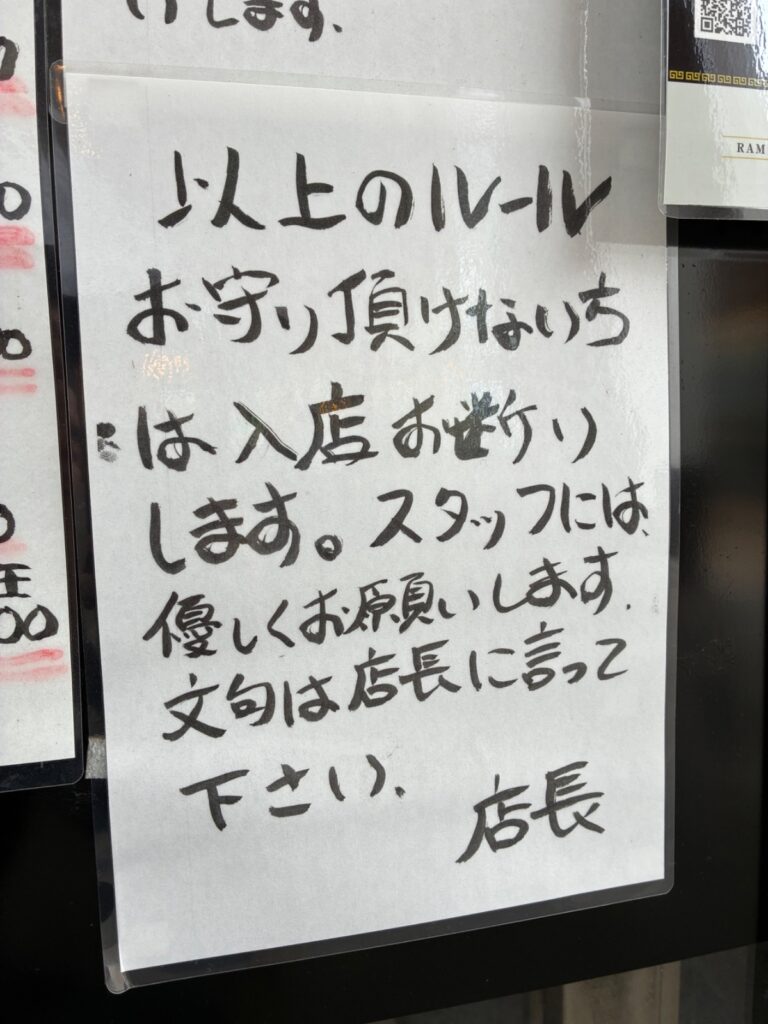 します.
RAM
以上のルール
お守り頂けない方
は入店お断り
します。スタッフには、
優しくお願いします.
文句は店長に言って
下さい.
店長
0
00
0
00